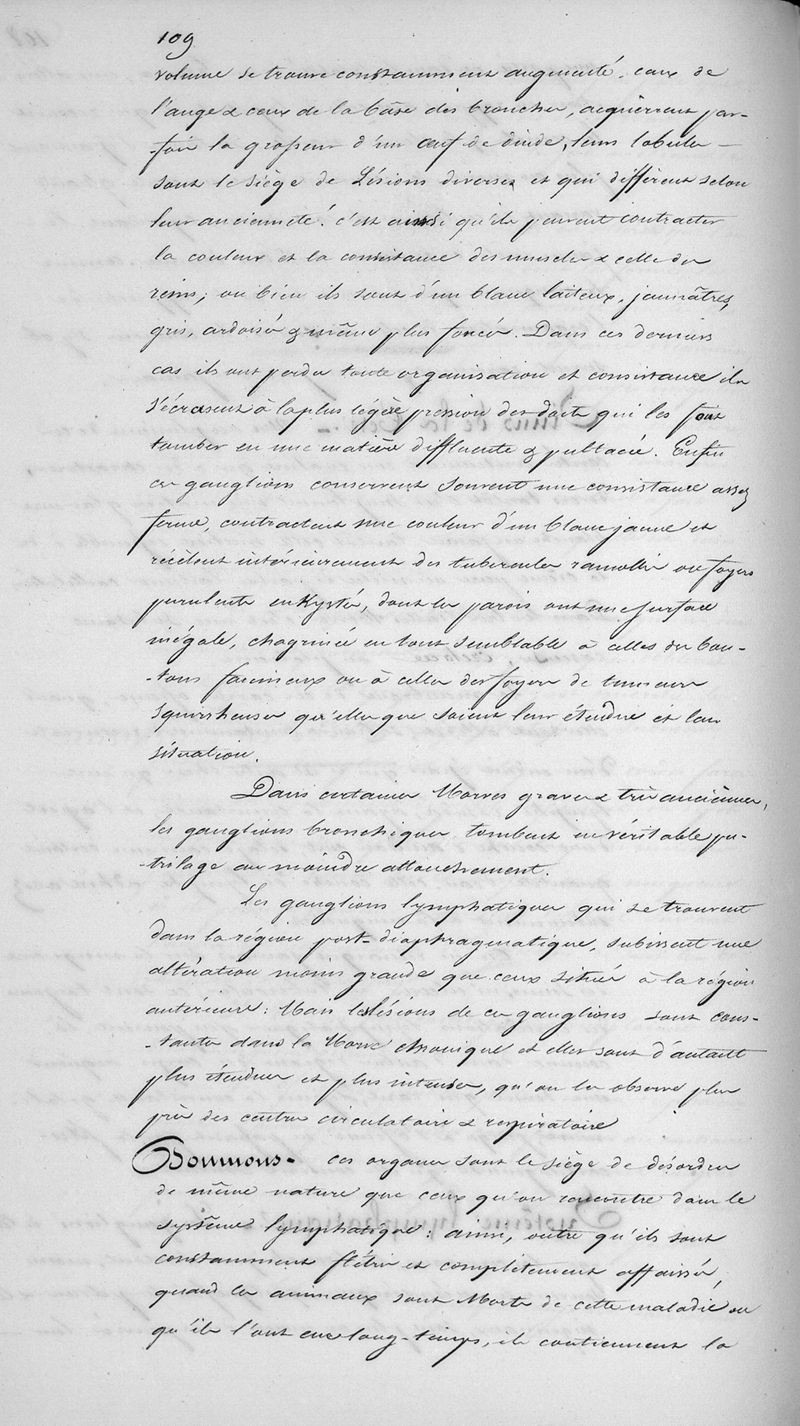 109
volume se trouve constamment augmenté. ceux de
l'auge & ceux de la base des bronches, acquièrent par-
-fois la grosseur d'un œuf de dinde, leurs lobules
sont le siège de Lésions diverses et qui diffèrent selon
leur ancienneté. c'est ainsi qu'ils peuvent contracter
la couleur et la consistance des muscles & celle des
reins; ou bien ils sont d'un blanc laiteux, jaunâtres,
gris, ardoisé & même plus foncé. Dans ces derniers
cas ils ont perdu toute organisation et consistance ils
s'écrasent à la plus légère pression des doits qui les font
tomber en une matière diffluente & pultacée. Enfin
ces ganglions conservent souvent une consistance assez
ferme, contractent une couleur d'un blanc jaune et
récèlent intérieurement des tubercules ramollis ou foyers
purulents enKystés, dont les parois ont une surface
inégale, chagrinée en tout semblable à celles des bou-
-tons farcineux ou à celles des foyers de tumeurs
squirrheuses qu'elle que soient leur étendue et leur
situation.
Dans certaines Morves graves & très anciennes,
les ganglions bronchiques tombent en véritable pu-
-trilage au moindre attouchement.
Les ganglions lymphatiques qui se trouvent
dans la région post-diaphragmatique, subissent une
altération moins grande que ceux situés à la région
antérieure: Mais les lésions de ces ganglions sont cons-
-tantes dans la Morve chronique et elles sont d'autant
plus étendues et plus intenses, qu'on les observe plus
près des centres circulatoire & respiratoire
Poumons. ces organes sont le siège de désordres
de même nature que ceux qu'on rencontre dans le
système lymphatique: ainsi, outre qu'ils sont
constamment flétris et complètement affaissés,
quand les animaux sont Morts de cette maladie ou
qu'ils l'ont eue long-temps, ils contiennent la